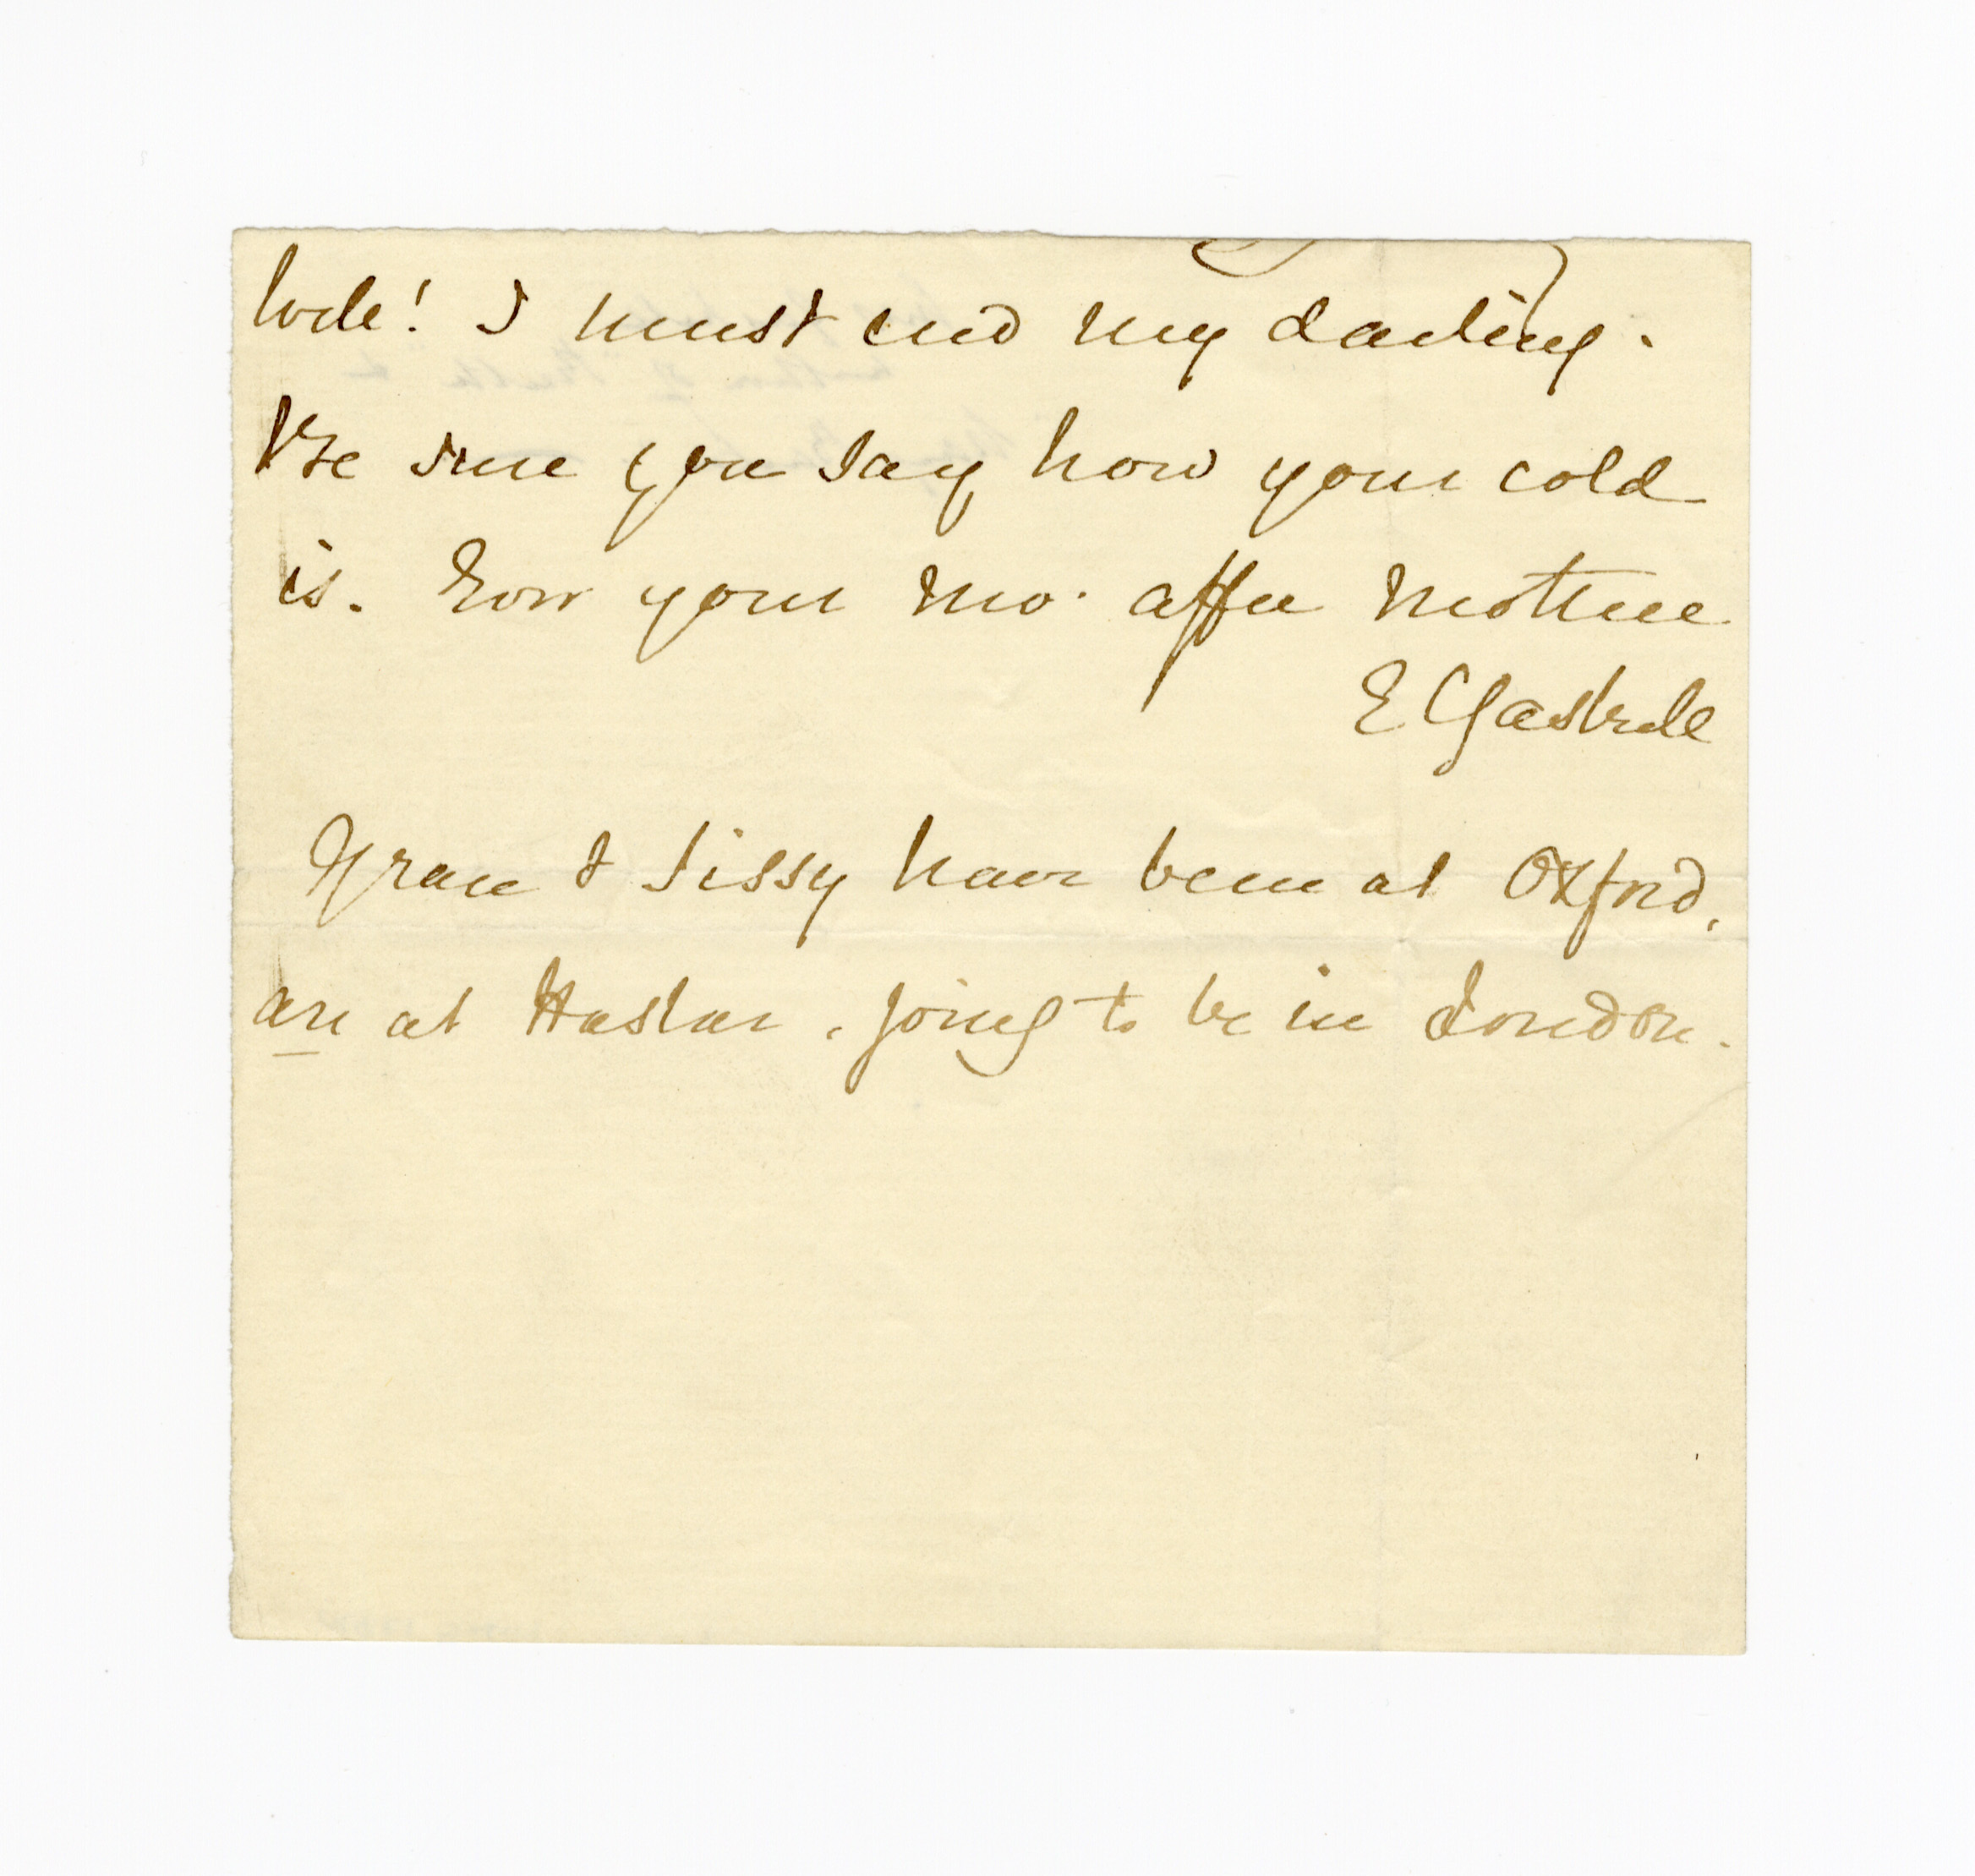 I must end my darling.
Be sure you say how your cold
is. Ever your mo. affec mother
E C Gaskell
Grace & Sissy have been at Oxford,
are at Haslar, going to be in London.